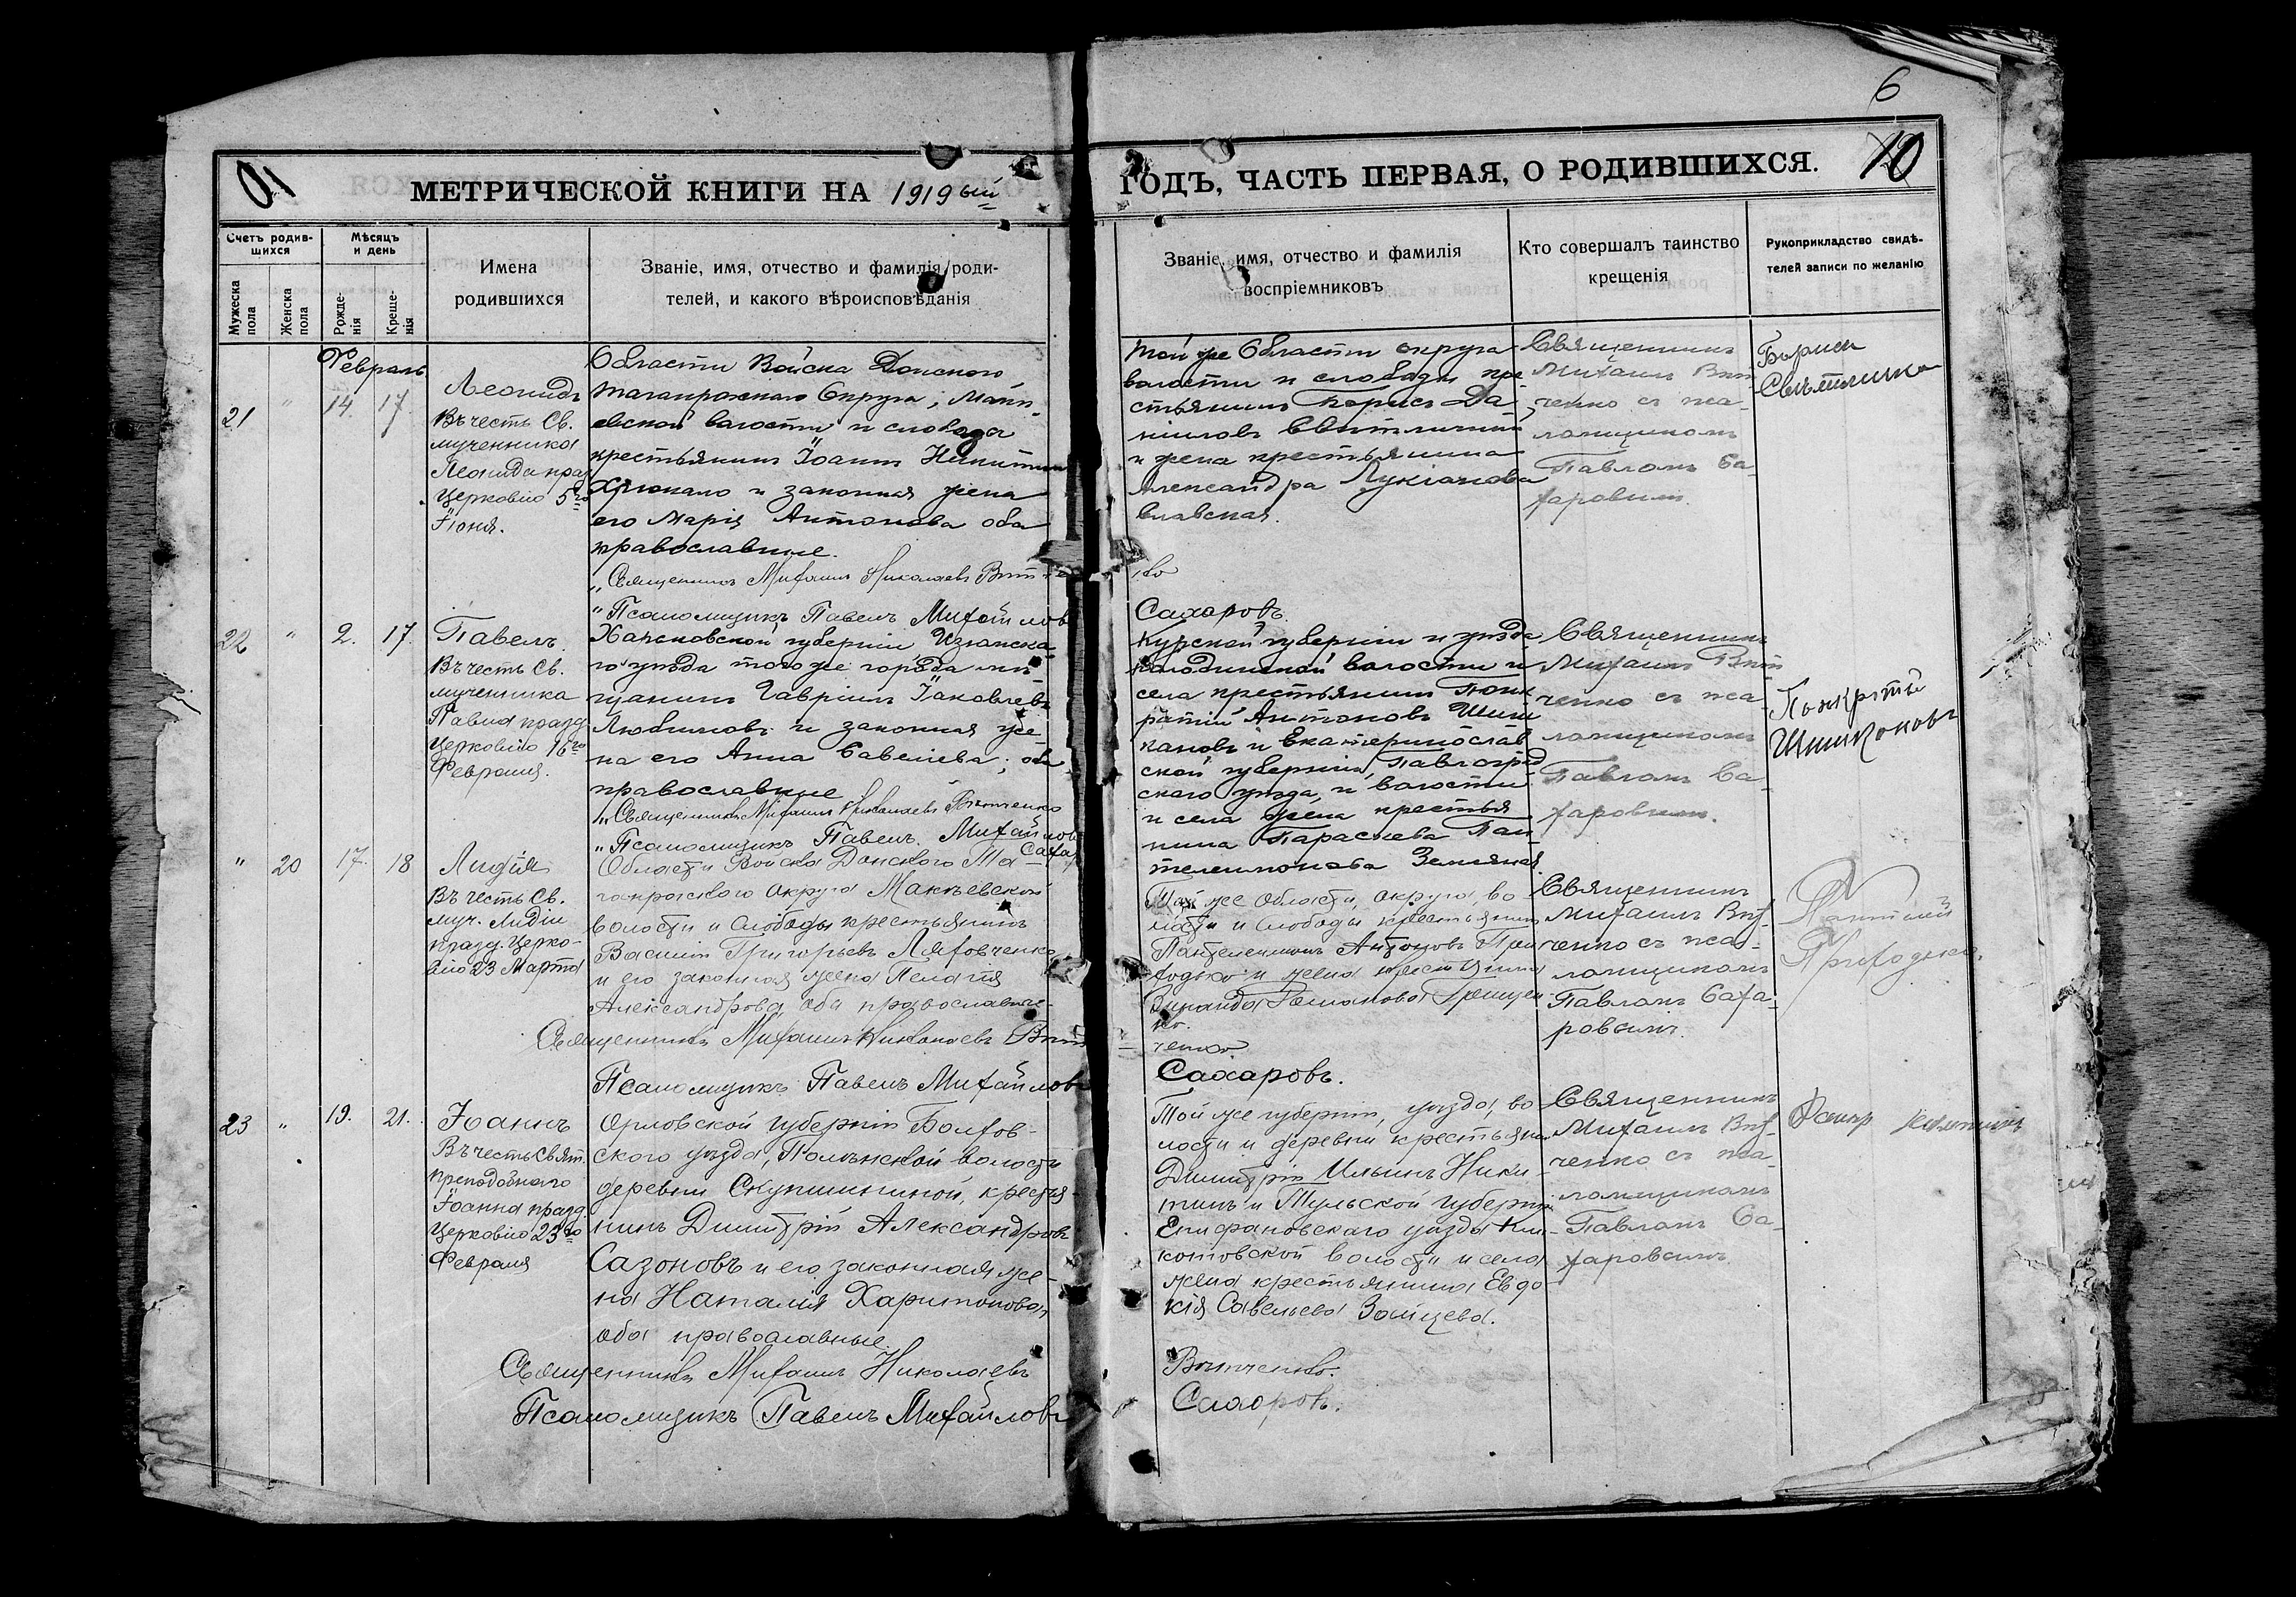 6
10
МЕТРИЧЕСКОЙ КНИГИ НА 1919ый
ГОДЪ, ЧАСТЬ ПЕРВАЯ, О РОДИВШИХСЯ.
Счетъ родив-
шихся
Мужеска пола
Женска пола
Мѣсяцъ
и день
Рожде-
нія
Креще-
нія
Имена
родившихся
Званіе, имя, отчество и фамилія роди-
телей, и какого вѣроисповѣданія
Званіе, имя, отчество и фамилія
воспріемниковъ
Кто совершалъ таинство
крещенія
Рукоприкладство свидѣ-
телей записи по желанію
Февраль
21 " 14. 17.
Леонидъ
Въ честь Св.
мученника
Леонида празд.
Церковію 5го
Іюня.
Области Войска Донского
Таганрожскаго Округа, Маке-
евской волости и слободы
крестьянинъ Іоаннъ Никитинъ
Хрюкало и законная жена
его Марія Антонова оба
православные.
"Священникъ Михаилъ Николаевъ Вит
"Псаломщикъ Павелъ Михайловъ
Той же Области округа
волости и слободы кре
стьянинъ Борисъ Да
ниловъ Свѣтличный
и жена крестьянина
Александра Лукіанова
Сахаровъ.
Священникъ
Михаилъ Вит
ченко съ пса-
ломщикомъ
Павломъ Са-
харовымъ.
Борисъ
22 " 2. 17.
Павелъ.
Въ честь Св.
мученника
Павла празд.
Церковію 16го
Февраля.
Харьковской губерніи, Изюмска-
го уѣзда того же города мѣ-
щанинъ Гавріилъ Іаковлевъ
Любимовъ и законная же-
на его Анна Савеліева; оба
православные
"Священникъ Михаилъ Николаевъ Витченко
"Псаломщикъ Павелъ Михайловъ
Сахар
Курской губерніи и уѣзда
волости и
села крестьянинъ Панк
ратій Антоновъ Шиш
кановъ и Екатеринослав
ской губерніи, Павлоград
скаго уѣзда, и волости
и села жена крестья
нина Параскева Пан
телеимонова Земляная.
Священникъ
Михаилъ Вит
ченко съ пса-
ломщикомъ
Павломъ Са-
харовымъ.
Панкратій
" 20 17. 18
Лидія
Въ честь Св.
муч. Лидіи
празд. Церко-
вію 23 Марта
Области Войска Донского Та-
ганрожскаго Округа Макѣевской
волости и слободы крестьянинъ
Василій Григорьевъ Ляховченко
и его законная жена Пелагія
Александрова, оба православные.
Священникъ Михаилъ Николаевъ Вит
Псаломщикъ Павелъ Михайловъ
Той же Области, округа, во-
лости и слободы крестьянинъ
Пантелеимонъ Антоновъ При
ходько и жена крестьянина
Романова Грищен
ко.
ченко
Сахаровъ.
Священникъ
Михаилъ Вит-
ченко съ пса-
ломщикомъ
Павломъ Саха-
ровымъ.
Приходько.
23 " 19. 21.
Іоаннъ
Въ честь Свят.
преподобнаго
Іоанна празд.
Церковію 23го
Февраля
Орловской губерніи Болхов-
ского уѣзда, волости
деревни крестья-
нинъ Димитрій Александровъ
Сазоновъ и его законная же-
на Наталія Харитонова,
оба православные.
Священникъ Михаилъ Николаевъ
Псаломщикъ Павелъ Михайловъ
Той же губерніи, уѣзда, во-
лости и деревни крестьянинъ
Димитрій Ильинъ Ники-
тинъ и Тульской губерніи
Епифановскаго уѣзда
волости и села
жена крестьянина Евдо-
кія Савельева Зайцева.
Витченко.
Сахаровъ.
Священникъ
Михаилъ Вит-
ченко съ пса-
ломщикомъ
Павломъ Са-
харовымъ.